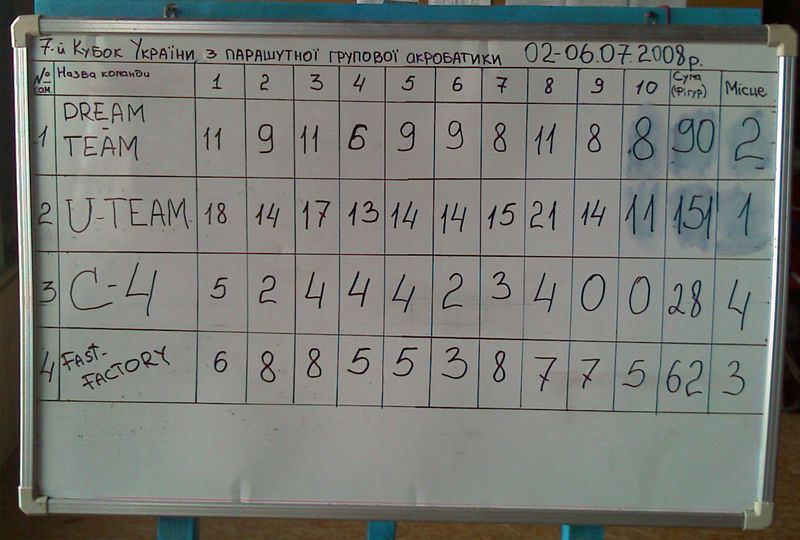 7-й Кубок України з парашутної групової акробатики 02-06.07.2008р.
№ ком. Назва команди 1 2 3 4 5 6 7 8 9 10 Сума (фігур) Місце
1 DREAM TEAM 11 9 11 6 9 9 8 11 8 8 90 2
2 U-TEAM 18 14 17 13 14 14 15 21 14 11 151 1
3 C-4 5 2 4 4 4 2 3 4 0 0 28 4
4 FAST-FACTORY 6 8 8 5 5 3 8 7 7 5 62 3